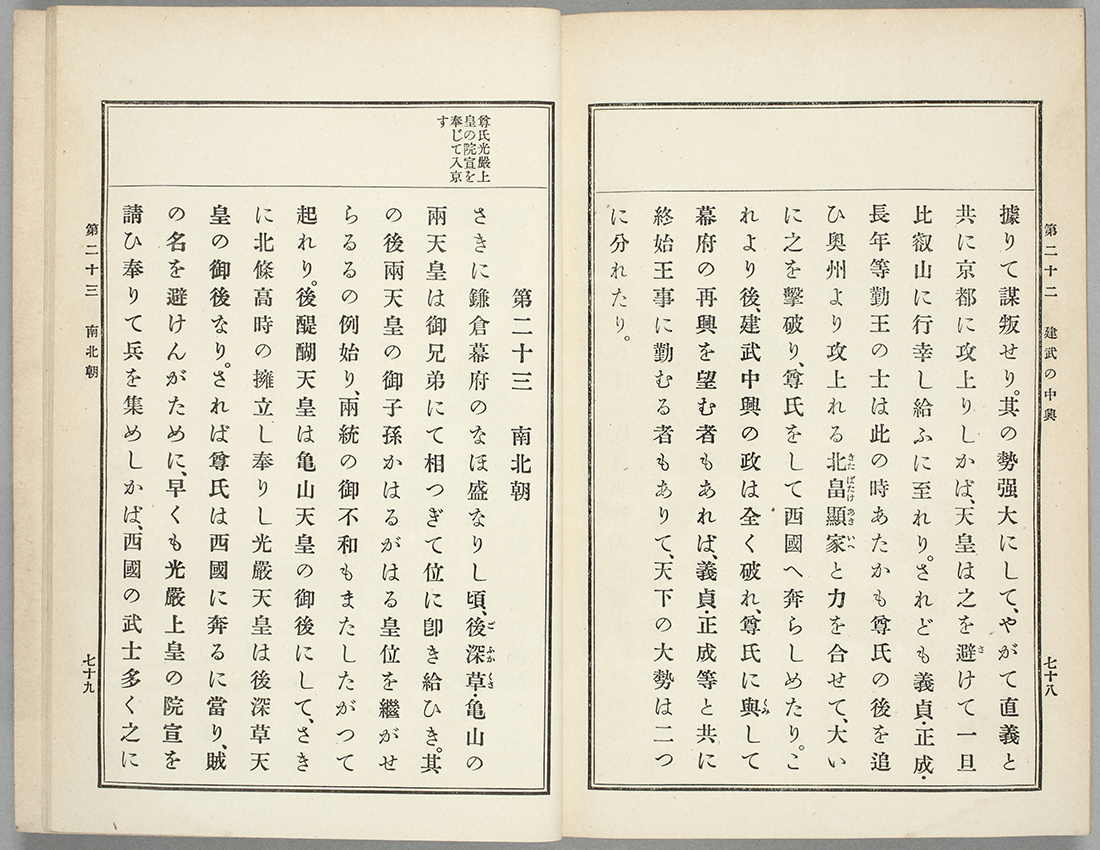 第二十二　建武の中興
七十八
據りて謀叛せり。其の勢强大にして、やがて直義と
共に京都に攻上りしかば、天皇は之を避けて一旦
さ
比叡山に行幸し給ふに至れり。されども義貞・正成・
長年等勤王の士は此の時あたかも尊氏の後を追
ひ奥州より攻上れる北畠顯家と力を合せて、大い
きたばたけあきいへ
に之を擊破り、尊氏をして西國へ奔らしめたり。こ
れより後、建武中興の政は全く破れ、尊氏に與して
くみ
幕府の再興を望む者もあれば、義貞・正成等と共に
終始王事に勤むる者もありて、天下の大勢は二つ
に分れたり。
尊氏光嚴上
皇の院宣を
奉じて入京
す
第二十三　南北朝
さきに鎌倉幕府のなほ盛なりし頃、後深草・亀山の
ごふかくさ
兩天皇は御兄弟にて相つぎて位に卽き給ひき。其
の後兩天皇の御子孫かはるがはる皇位を繼がせ
らるるの例始り、兩統の御不和もまたしたがつて
起れり。後醍醐天皇は亀山天皇の御後にして、さき
に北條高時の擁立し奉りし光嚴天皇は後深草天
皇の御後なり。されば尊氏は西國に奔るに當り、賊
の名を避けんがために、早くも光嚴上皇の院宣を
請ひ奉りて兵を集めしかば、西國の武士多く之に
第二十三　南北朝
七十九